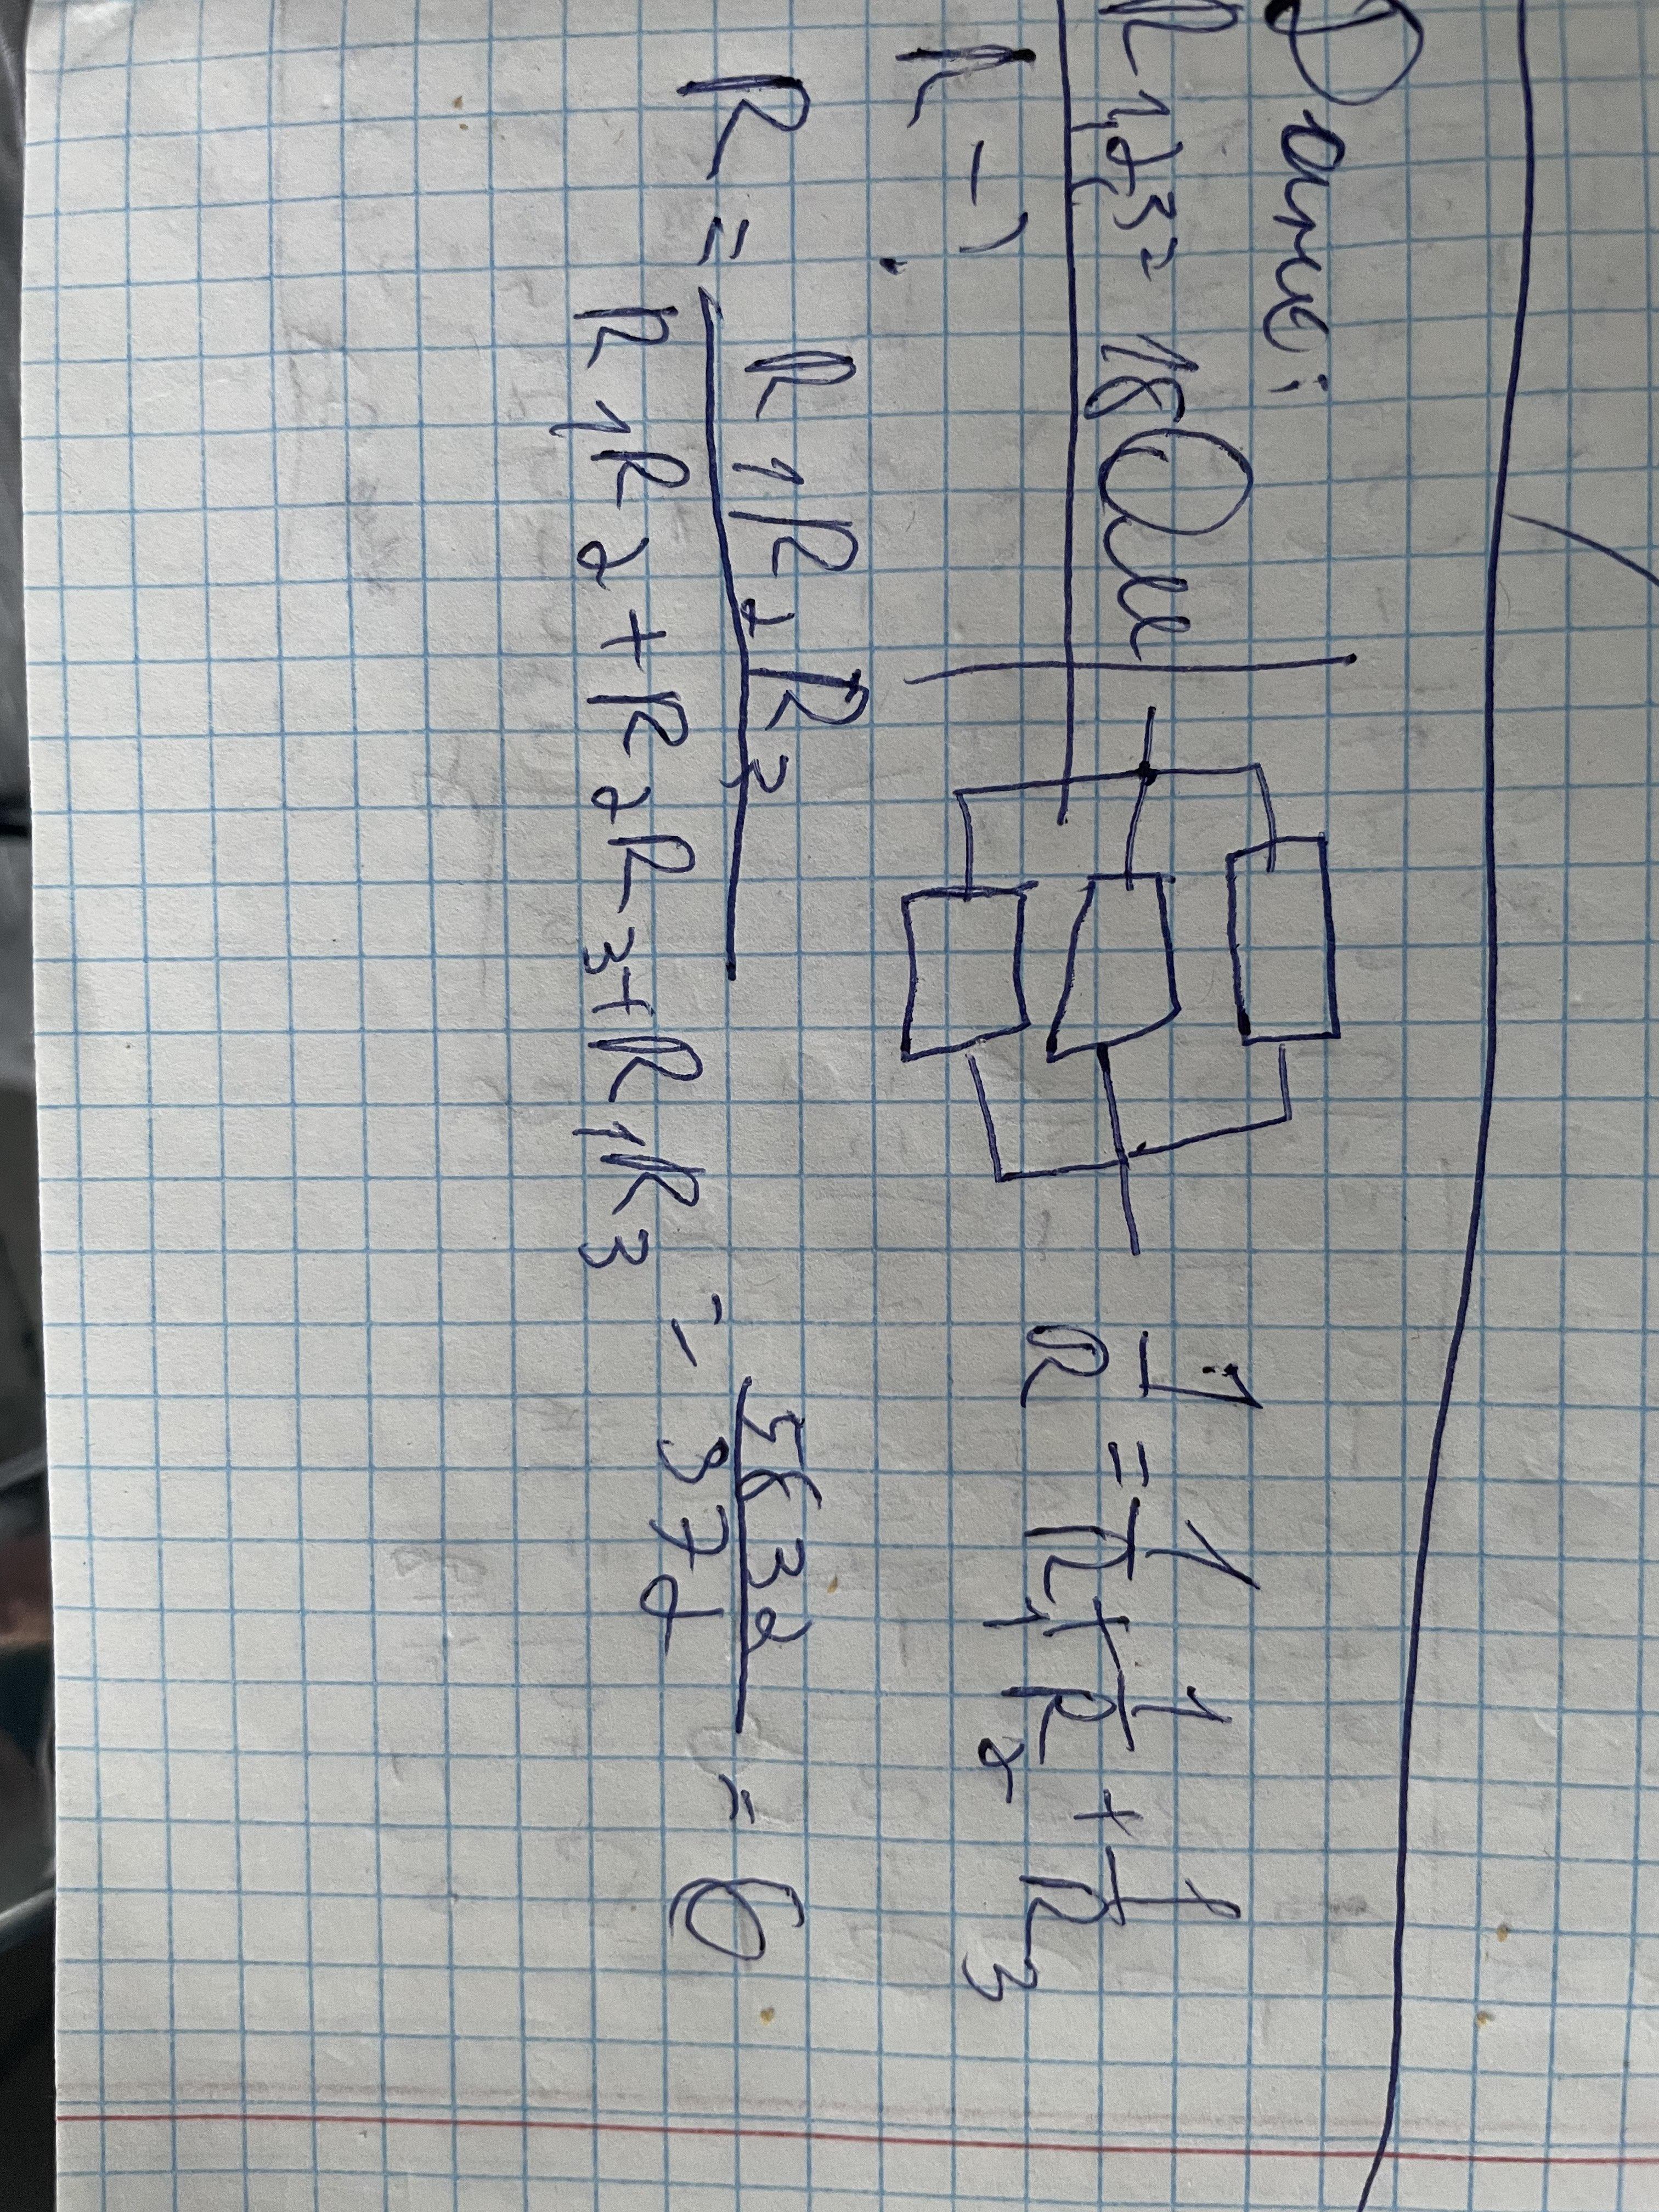 Дано:
R1,2,3 = 18 Ом
R - ?
1/R = 1/R1 + 1/R2 + 1/R3
R = R1R2R3 / R1R2 + R2R3 + R1R3 = 5832 / 972 = 6